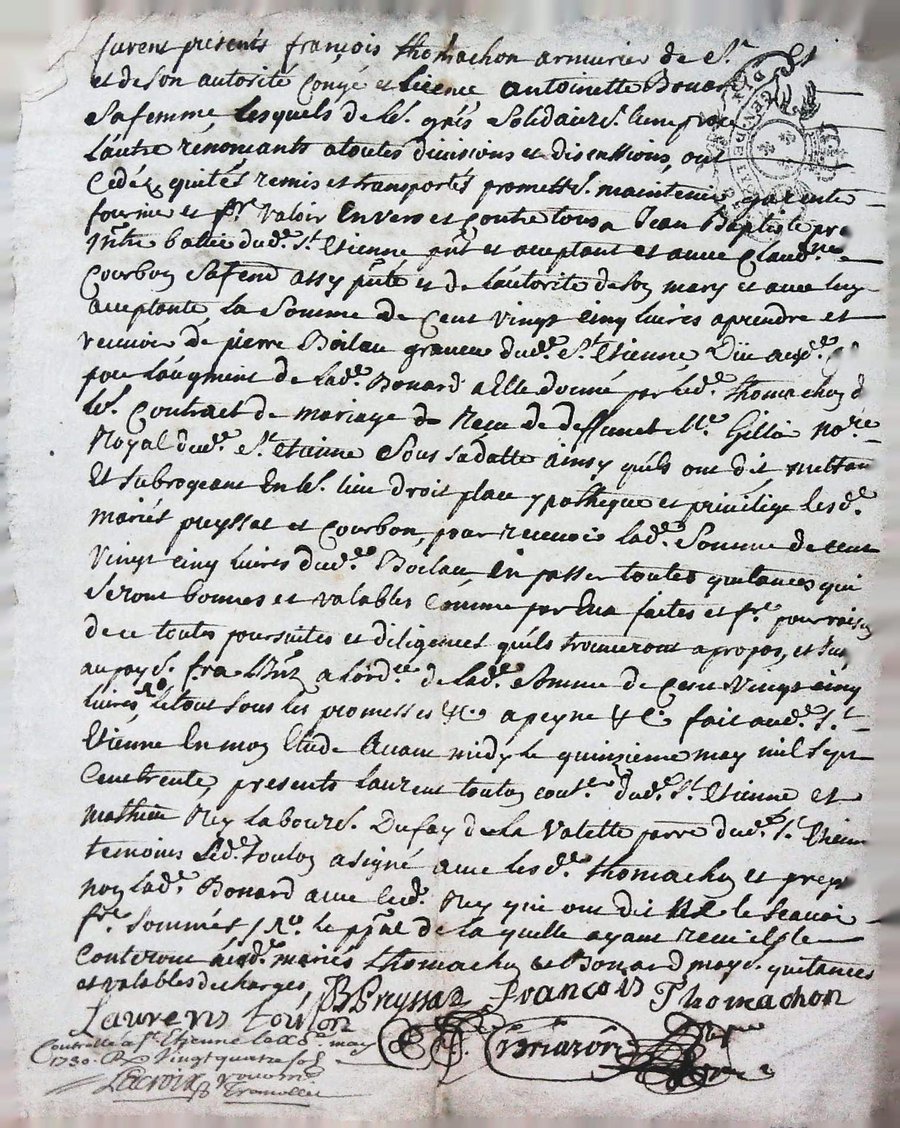 furent presents françois thomachon armurier de St. Et
et de son autorité Congé et licence antoinette Bonar
Sa femme, Lesquels de le. grés Solidaire. lun po
Lautre renonçants a toutes divisions et discutions, ont
Cedés quités remis et transportés promett. maintenir garentir
fournir et fr. Valoir Envers et Contre tous a Jean Baptiste pre
dud.e St. Etienne pnt et aceptant et avec Claud.ne
Courbon Sa feme assy pnte et de Lautorité de Son mary et avec luy
aceptante, la Somme de Cent Vingt Cinq livres a prendre et
recevoir de pierre Boilau graveur dud.e St. Etienne
pour Laugment de lad.e Bonard a Elle donné par led.e thomachon d
le. Contract de mariage de Receu de deffunct Me. Gillier No.re
Royal dud.e St. etienne Sous Sa datte ainsy quils ont dit mettan
Et Subrogeant En le. lieu droit place ypotheque et privilege les d.e
mariés peyssat et Courbon, pour recevoir lad.e Somme de cent
Vingt Cinq livres dud.e Boilau En passer toutes quitances qui
Seront bonnes et valables Comme par Eux faites et fre. pour raison
de ce toutes poursuites et diligences quils trouveront a propos, et
au pay. a lord.re de lad.e Somme de Cent Vingt Cinq
livres, le tout Sous les promesses &c. a peyne &c. fait aud.e St.
Etienne En mon Etude Avant midy le quinsieme may mil Sept
Cent trente, presents Laurent toulon cout. dud.e St. Etienne et
mathieu Rey Labour. Du fay de La Valette parre dud.e St. Etien
temoins led.e toulon a signé avec les d.e thomachon et peys
non lad.e Bonard avec led.e Rey qui ont dit ne le Scavoir
fre. Sommés le ppal de la quelle ayant
mariés thomachon et Bonard quitances
et valables decharges,
JBPeyssat françois Thomachon
Laurens toulon
Briaron
Controllé a St. Etienne le may
1730. Rx Vingt quatre sols
Lacroix